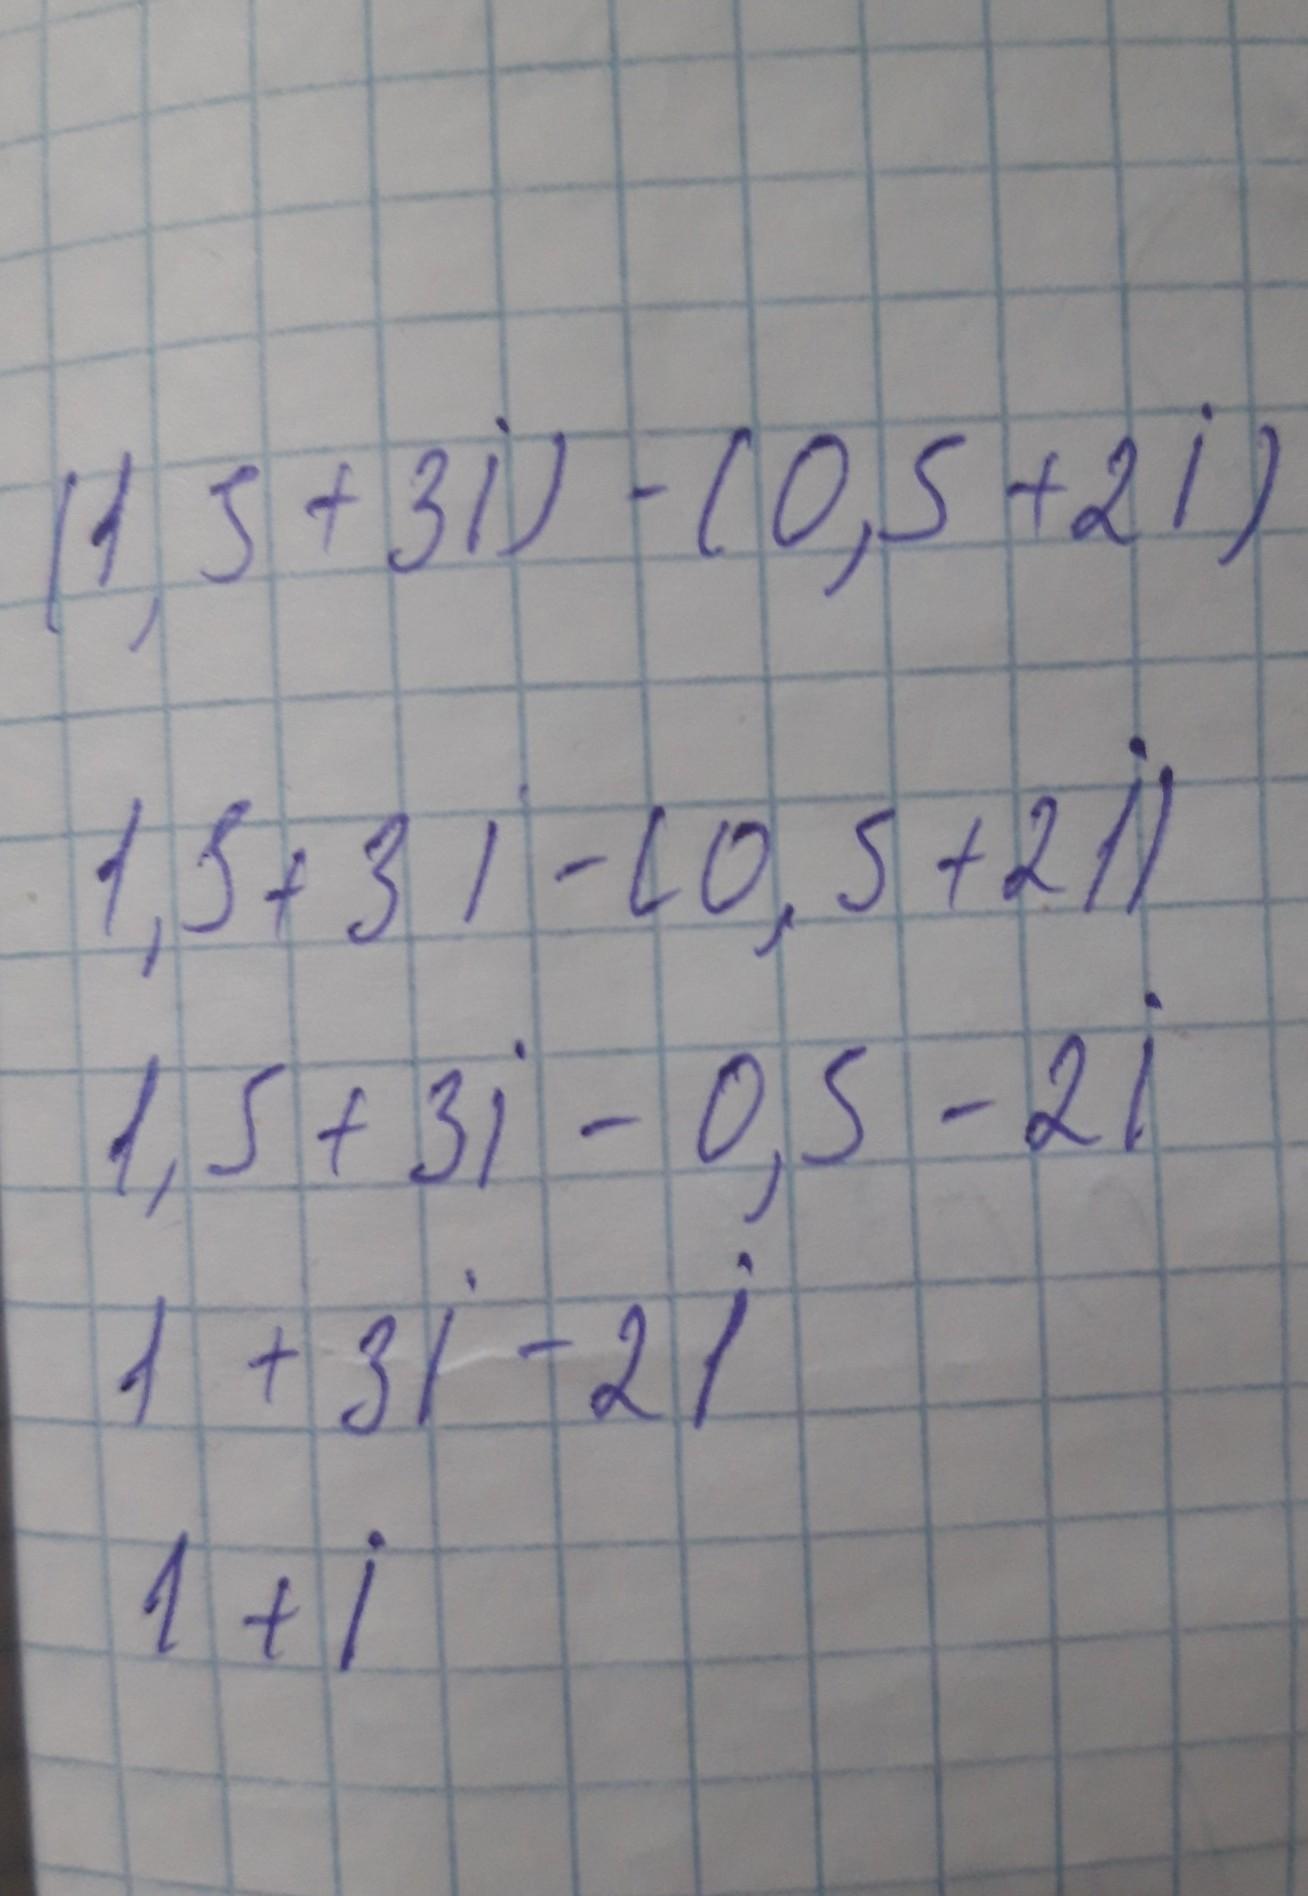 (1,5+3i)-(0,5+2i)
1,5+3i-(0,5+2i)
1,5+3i-0,5-2i
1+3i-2i
1+i